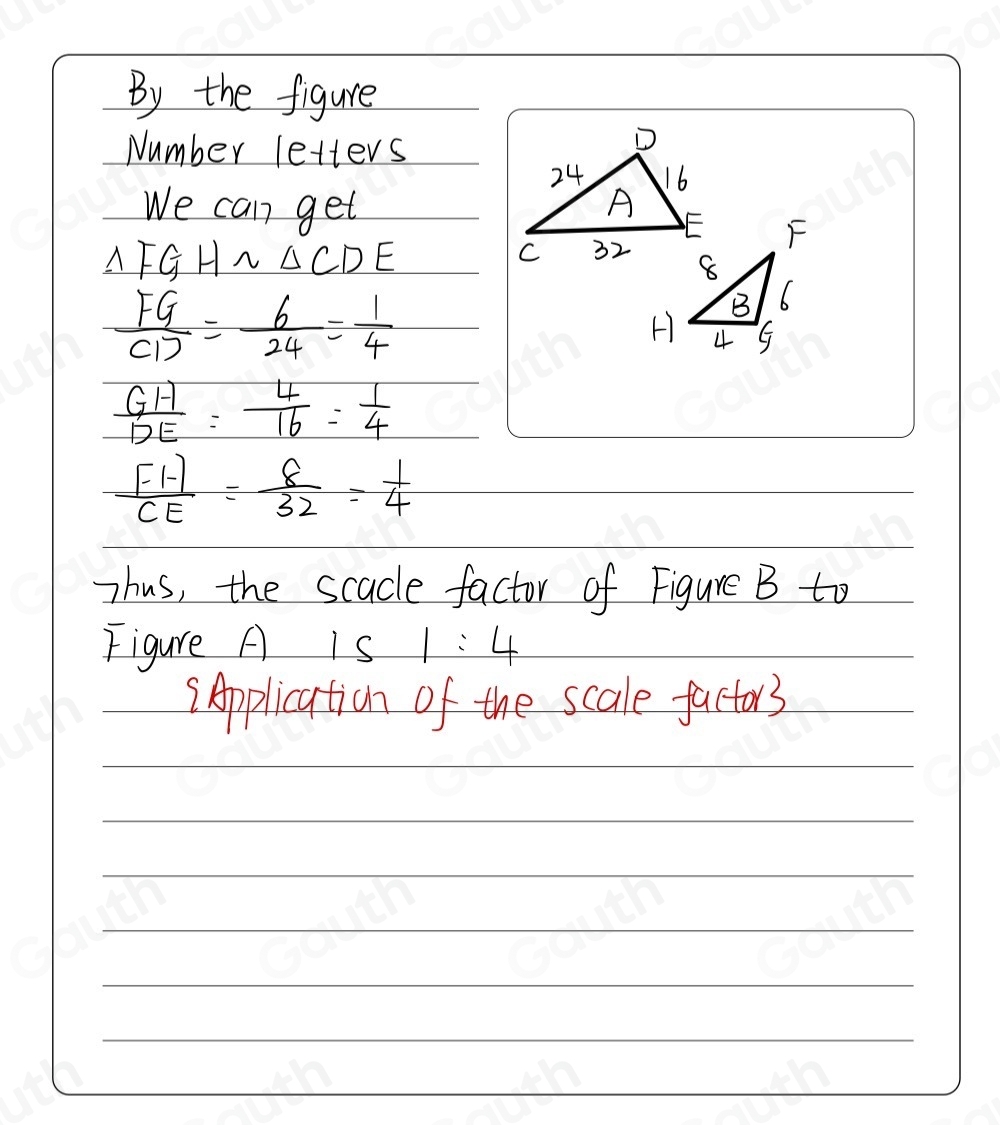 By the figure
Number letters
We can get
△FGH ~ △CDE
FG/CD = 6/24 = 1/4
GH/DE = 4/16 = 1/4
FH/CE = 8/32 = 1/4
D
24
16
A
E
C
32
F
8
B
6
H
4
G
Thus, the scacle factor of Figure B to
Figure A is 1 : 4
{Application of the scale factor}
Gauth